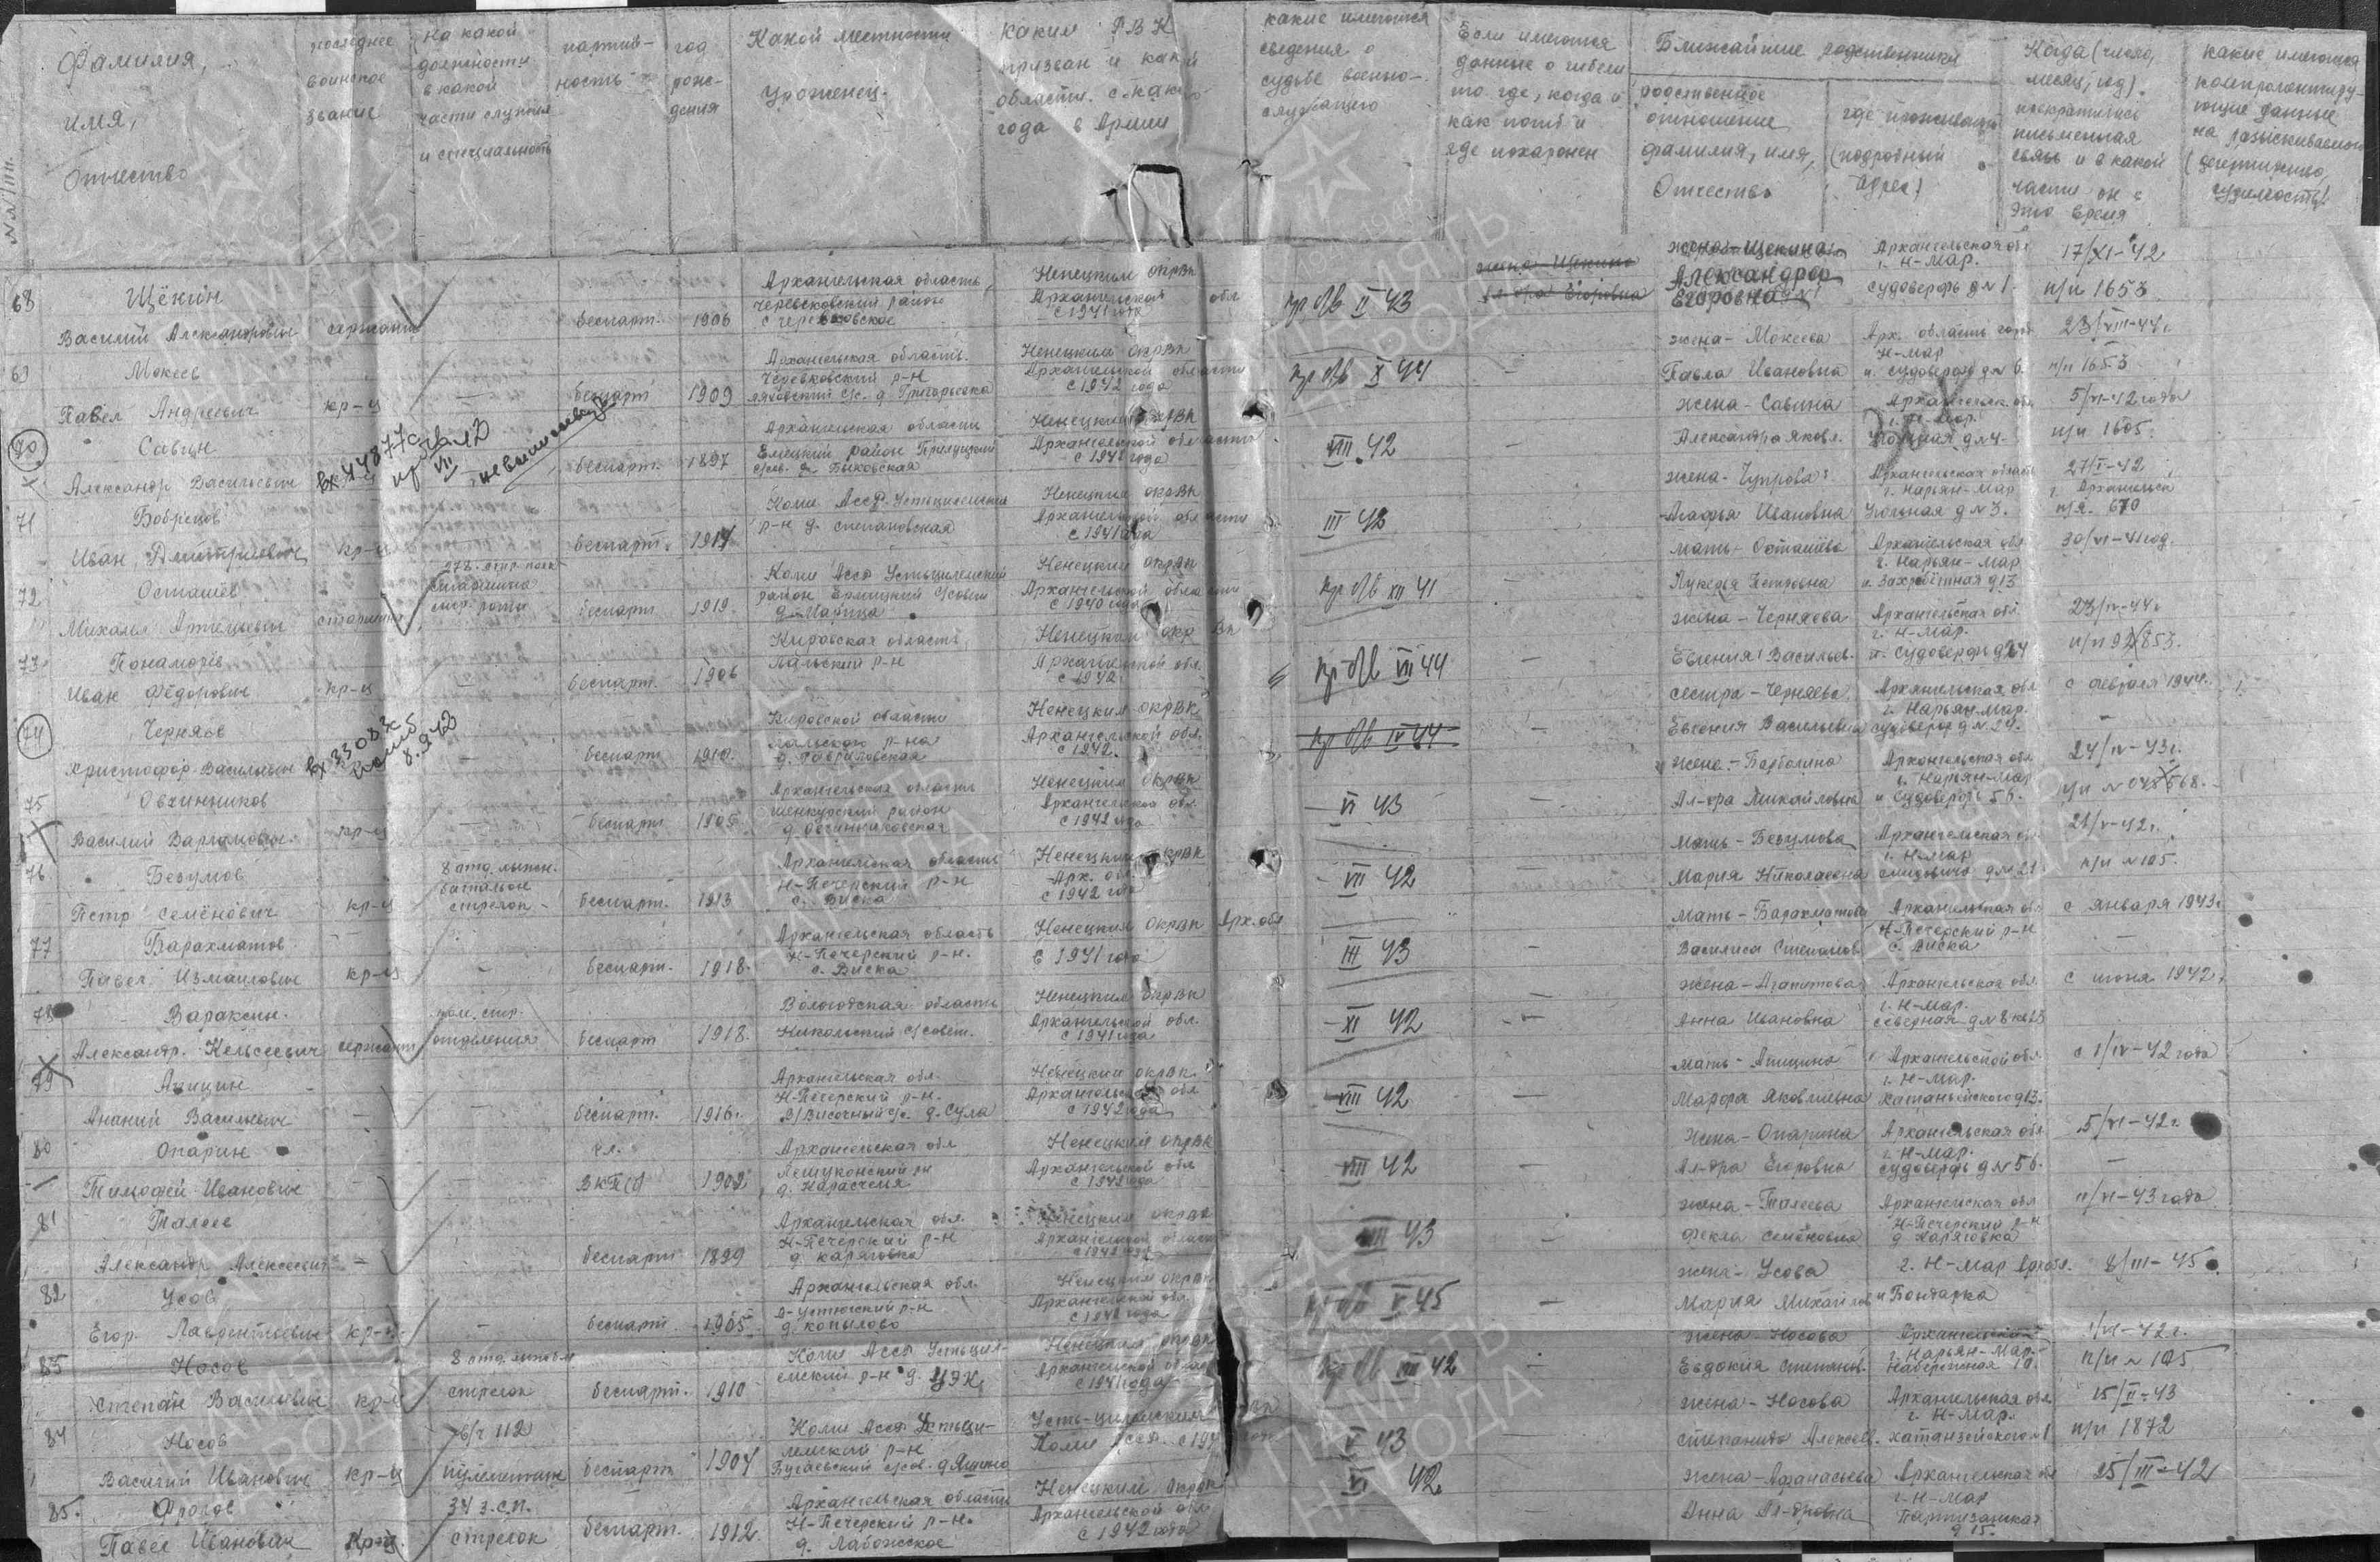 Фамилия,
имя,
Отчество
последнее
воинское
звание
На какой
должности
в какой
части служил
и специальность
партий-
ность
год
рож-
дения
Какой местности
уроженец.
каким РВК
призван и какой
области. с какого
года в Армии
какие имеются
сведения о
судьбе военно-
служащего
Если имеются
данные о гибели
то где, когда и
как погиб и
где похоронен
Ближайшие родственники
родственное
отношение
фамилия, имя,
Отчество
где проживают
(подробный
адрес)
Когда (число,
месяц, год).
прекратилась
письменная
связь и в какой
части он в
это время
какие имеются
компрометиру-
ющие данные
на разыскиваемого
(дезертирство,
судимость)
68 Щёкин
Василий Александрович сержант беспарт. 1906
Архангельская область,
Черевковский район
с. Черевковское
Ненецким окрвк
Архангельской обл
с 1941 года
пр б/в II 43
жена Щекина
Ал-дра Егоровна
жена Щекина
Александра
Егоровна
Архангельская обл
г. Н-Мар.
судоверфь д №1.
17/XI-42
п/п 1653
69 Мокеев
Павел Андреевич кр-ц — беспарт 1909
Архангельская область.
Черевковский р-н
с/с. д Григорьевка
Ненецким окрвк
Архангельской области
с 1942 года
пр б/в X 44 —
жена - Мокеева
Павла Ивановна
Арх. область гор
Н-Мар
п. судоверфь д № 6.
23/VIII-44г.
п/п 1653
70 Савин
Александр Васильевич беспарт. 1897
вх 44877с
пр б/в
VII
Архангельская области
Емецкий район
д. Быковская
Ненецким окрвк
Архангельской области
с 1941 года
VIII 42 —
жена - Савина
Александра Яковл.
Архангельск. обл
г. Н-Мар.
Угольная д № 4.
5/VI-42 года
п/п 1605.
71 Бобрецов
Иван Дмитриевич кр-ц — беспарт. 1914
Коми Асср. Устьцилемский
р-н д. Степановская
Ненецким окрвк
Архангельской области
с 1941 года
III 42
жена - Чупрова
Агафья Ивановна
Архангельская область
г. Нарьян-Мар
Угольная д № 3.
27/I-42
г. Архангельск
п/я. 670
72 Осташёв
Михаил Артемьевич старшина
278 стр полк
старшина
стр. роты
беспарт 1919.
Коми Асср Устьцилемский
район Ермицкий с/совет
д. Марица
Ненецким окрвк
Архангельской области
с 1940 года
пр б/в XII 41
мать - Осташёва
Лукерья Петровна
Архангельская обл
г. Нарьян-Мар
п. Захребетная д 13
30/VI-41 год.
73. Понаморёв
Иван Фёдорович кр-ц — беспарт. 1906
Кировская область,
Лальский р-н
Ненецким окрвк
Архангельской обл.
с 1942.
пр б/в VII 44 —
жена - Черняева
Евгения Васильев.
Архангельская обл
г. Н-Мар.
п. судоверфь д 24
23/IV-44г
п/п 92853.
74 Черняев
Христофор Васильевич — беспарт 1910.
вх 3308 3с
погиб
8.9.42
Кировской области
Лальского р-на
д. Гавриловская
Ненецким окрвк
Архангельской обл.
с 1942.
пр б/в IV 44
сестра - Черняева
Евгения Васильевна
Архангельская обл
г. Нарьян-Мар.
судоверфь д № 24.
с февраля 1944г.
—
75 Овчинников
Василий Варламович кр-ц — беспарт 1905
Архангельская область
Шенкурский район
д. Овчинниковская
Ненецким окрвк
Архангельской обл.
с 1942 года
VI 43 —
жена - Барболина
Ал-дра Михайловна
Архангельская обл
г. Нарьян-Мар
п судоверфь 56.
24/IV-43г.
76. Безумов
Петр Семёнович кр-ц
8 отд. лыжн.
батальон
стрелок
— беспарт. 1913
Архангельская область
Н-Печерский р-н
с. Виска
Ненецким окрвк
Арх. обл.
с 1942 года
VII 42
мать - Безумова
Мария Николаевна
Архангельская обл
г. Н-Мар
Смидовича д № 21
21/V-42г.
п/п № 105.
77 Барахматов
Павел Измаилович кр-ц — беспарт. 1918.
Архангельская область
Н-Печерский р-н.
с. Виска
Ненецким Окрвк Арх. обл
с 1941 года
III 43 —
мать - Барахматова
Василиса Степанов
Архангельская обл
Н-Печерский р-н
с. Виска
с января 1943г
—
78 Вараксин.
Александр. Кельсеевич сержант
ком. стр.
отделения
беспарт 1918.
Вологодская область
Никольский с/совет.
Ненецким окрвк
Архангельской обл.
с 1941 года
XI 42 —
жена - Агапитова
Анна Ивановна
Архангельская обл.
г. Н-Мар.
северная д № 8 кв 23
с июня 1942г
79 Апицин
Ананий Васильевич — — беспарт. 1916.
Архангельская обл.
Н-Печерский р-н.
В/Височный с/с. д. Сула
Ненецким окрвк.
Архангельской обл
с 1942 года
VIII 42 —
мать - Апицина
Марфа Яковлевна
Архангельской обл
г. Н-Мар.
с 1/IV-42 года
80 Опарин
Тимофей Иванович — — чл.
ВКП(б) 1902
Архангельская обл
Лешуконский рн
Ненецким окрвк
Архангельской обл
с 1942 года
VIII 42 —
жена - Опарина
Ал-дра Егоровна
Архангельская обл
г. Н-Мар.
судоверфь д № 56.
5/VI-42г.
—
81 Талеев
Александр Алексеевич — беспарт 1899
Архангельская обл.
Н-Печерский р-н
д Каряговка
Ненецким окрвк
Архангельской области
с 1942 года
VIII 43 —
жена - Талеева
Фекла Семёновна
Архангельская обл
Н-Печерский р-н
д Каряговка
11/VI-43 года
82 Усов
Егор. Лаврентьевич кр-ц. — беспарт. 1905
Архангельская обл.
В-Устюгский р-н
д. Копылово
Ненецким окрвк
Архангельской обл.
с 1941 года
пр б/в V 45 —
жена - Усова
Мария Михайлов
г. Н-Мар Арх обл.
п Бондарка
8/III-45
83 Носов
Степан Васильевич кр-ц
8 отд. лыжбат
стрелок беспарт. 1910
Коми Асср Устьцил-
емский р-н д.
Ненецким окрвк
Архангельской области
с 1941 года
пр б/в VIII 42 —
жена Носова
Евдокия Степанов.
Архангельская
г. Нарьян-Мар
Набережная 10.
1/VI-42г.
п/п № 105
84 Носов
Василий Иванович кр-ц
в/ч 112
пулеметчик беспарт 1904
Коми Асср Устьци-
лемский р-н
Бугаевский с/сов.
Усть-цилемским
Коми Асср.
V 43
жена - Носова
Степанида Алексеев.
Архангельская обл
г. Н-Мар.
15/II-43
п/п 1872
85. Фролов
Павел Иванович кр-ц.
34 з.с.п.
стрелок беспарт. 1912
Архангельская область
Н-Печерский р-н.
д. Лабожское
Ненецким окрвк
Архангельской обл
с 1942 года
VI 42.
жена - Афанасьева
Анна Ал-дровна
Архангельская обл
г. Н-Мар
Партизанская
д 15.
25/III-42
ПАМЯТЬ
НАРОДА